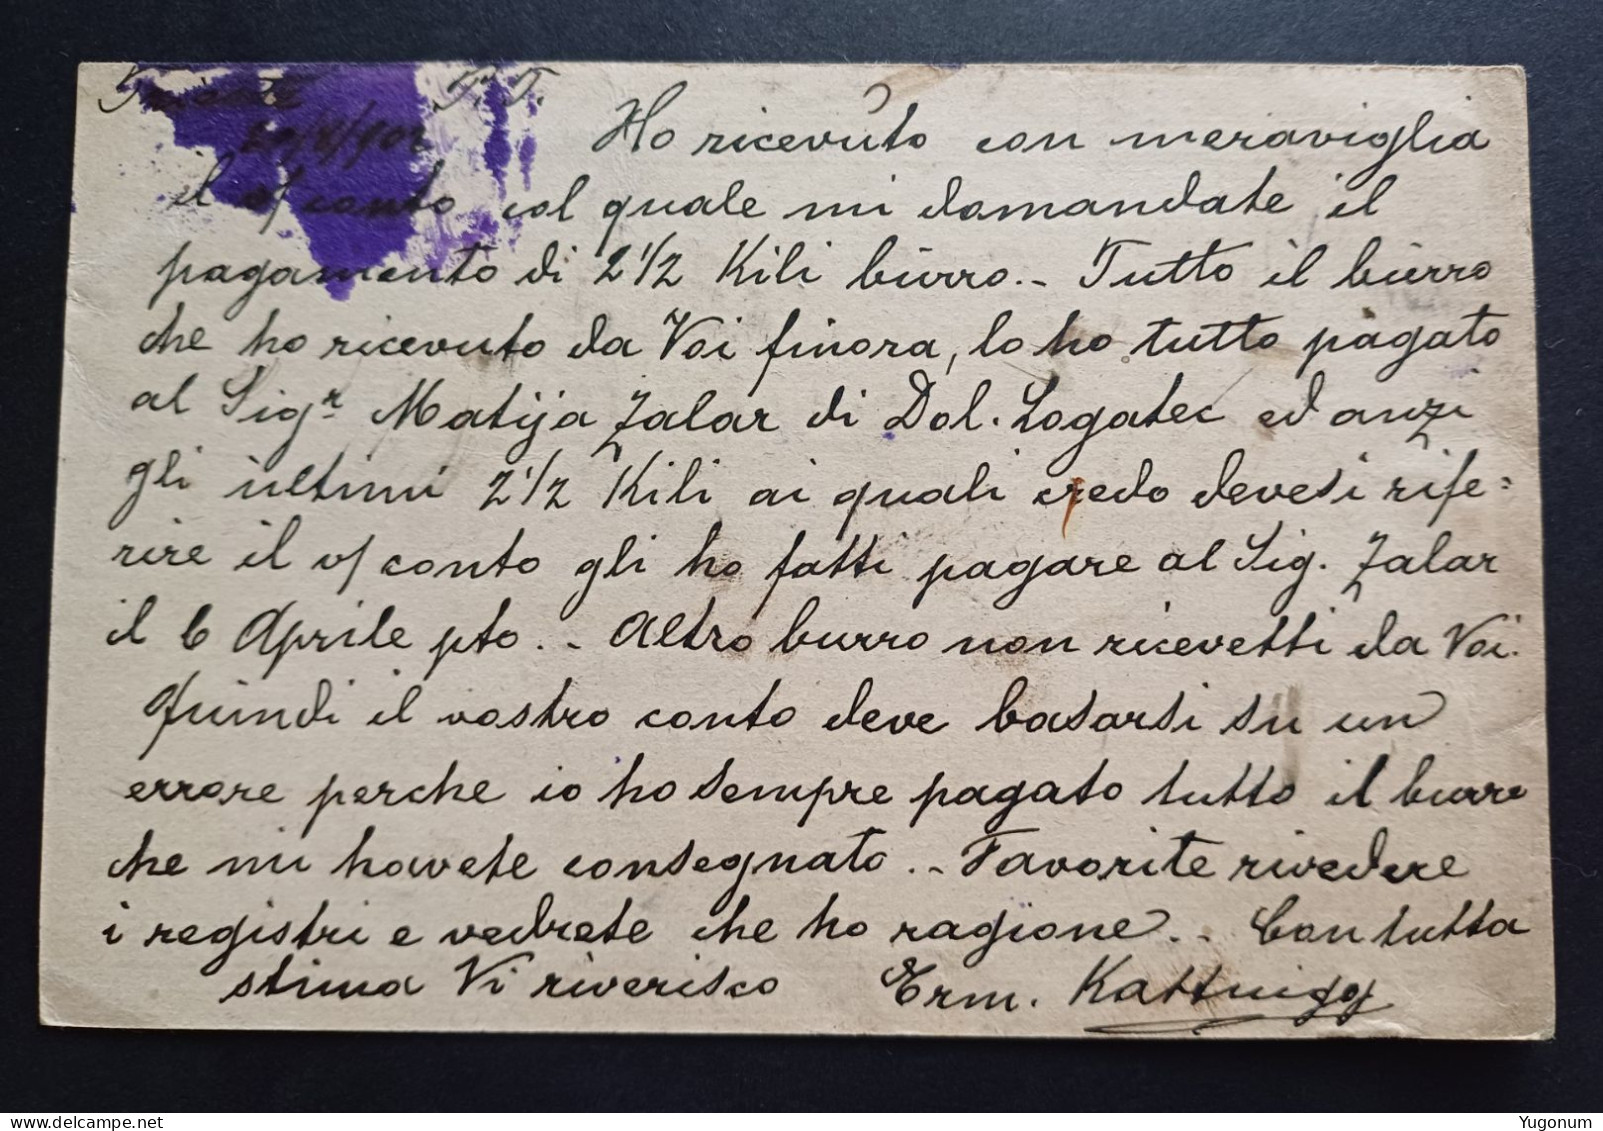 Trieste T. T.
Ho ricevuto con meraviglia
il v/ conto col quale mi domandate il
pagamento di 2 1/2 Kili burro.- Tutto il burro
che ho ricevuto da Voi finora, lo ho tutto pagato
al Sigr Matija Zalar di Dol. Logatec ed anzi
gli ultimi 2 1/2 Kili ai quali credo devesi rife=
rire il v/ conto gli ho fatti pagare al Sig. Zalar
il 6 Aprile pto.- Altro burro non ricevetti da Voi.
Quindi il vostro conto deve basarsi su un
errore perche io ho sempre pagato tutto il burro
che mi havete consegnato.- Favorite rivedere
i registri e vedrete che ho ragione.- Con tutta
stima Vi riverisco Erm. Kattnigg
Yugonum